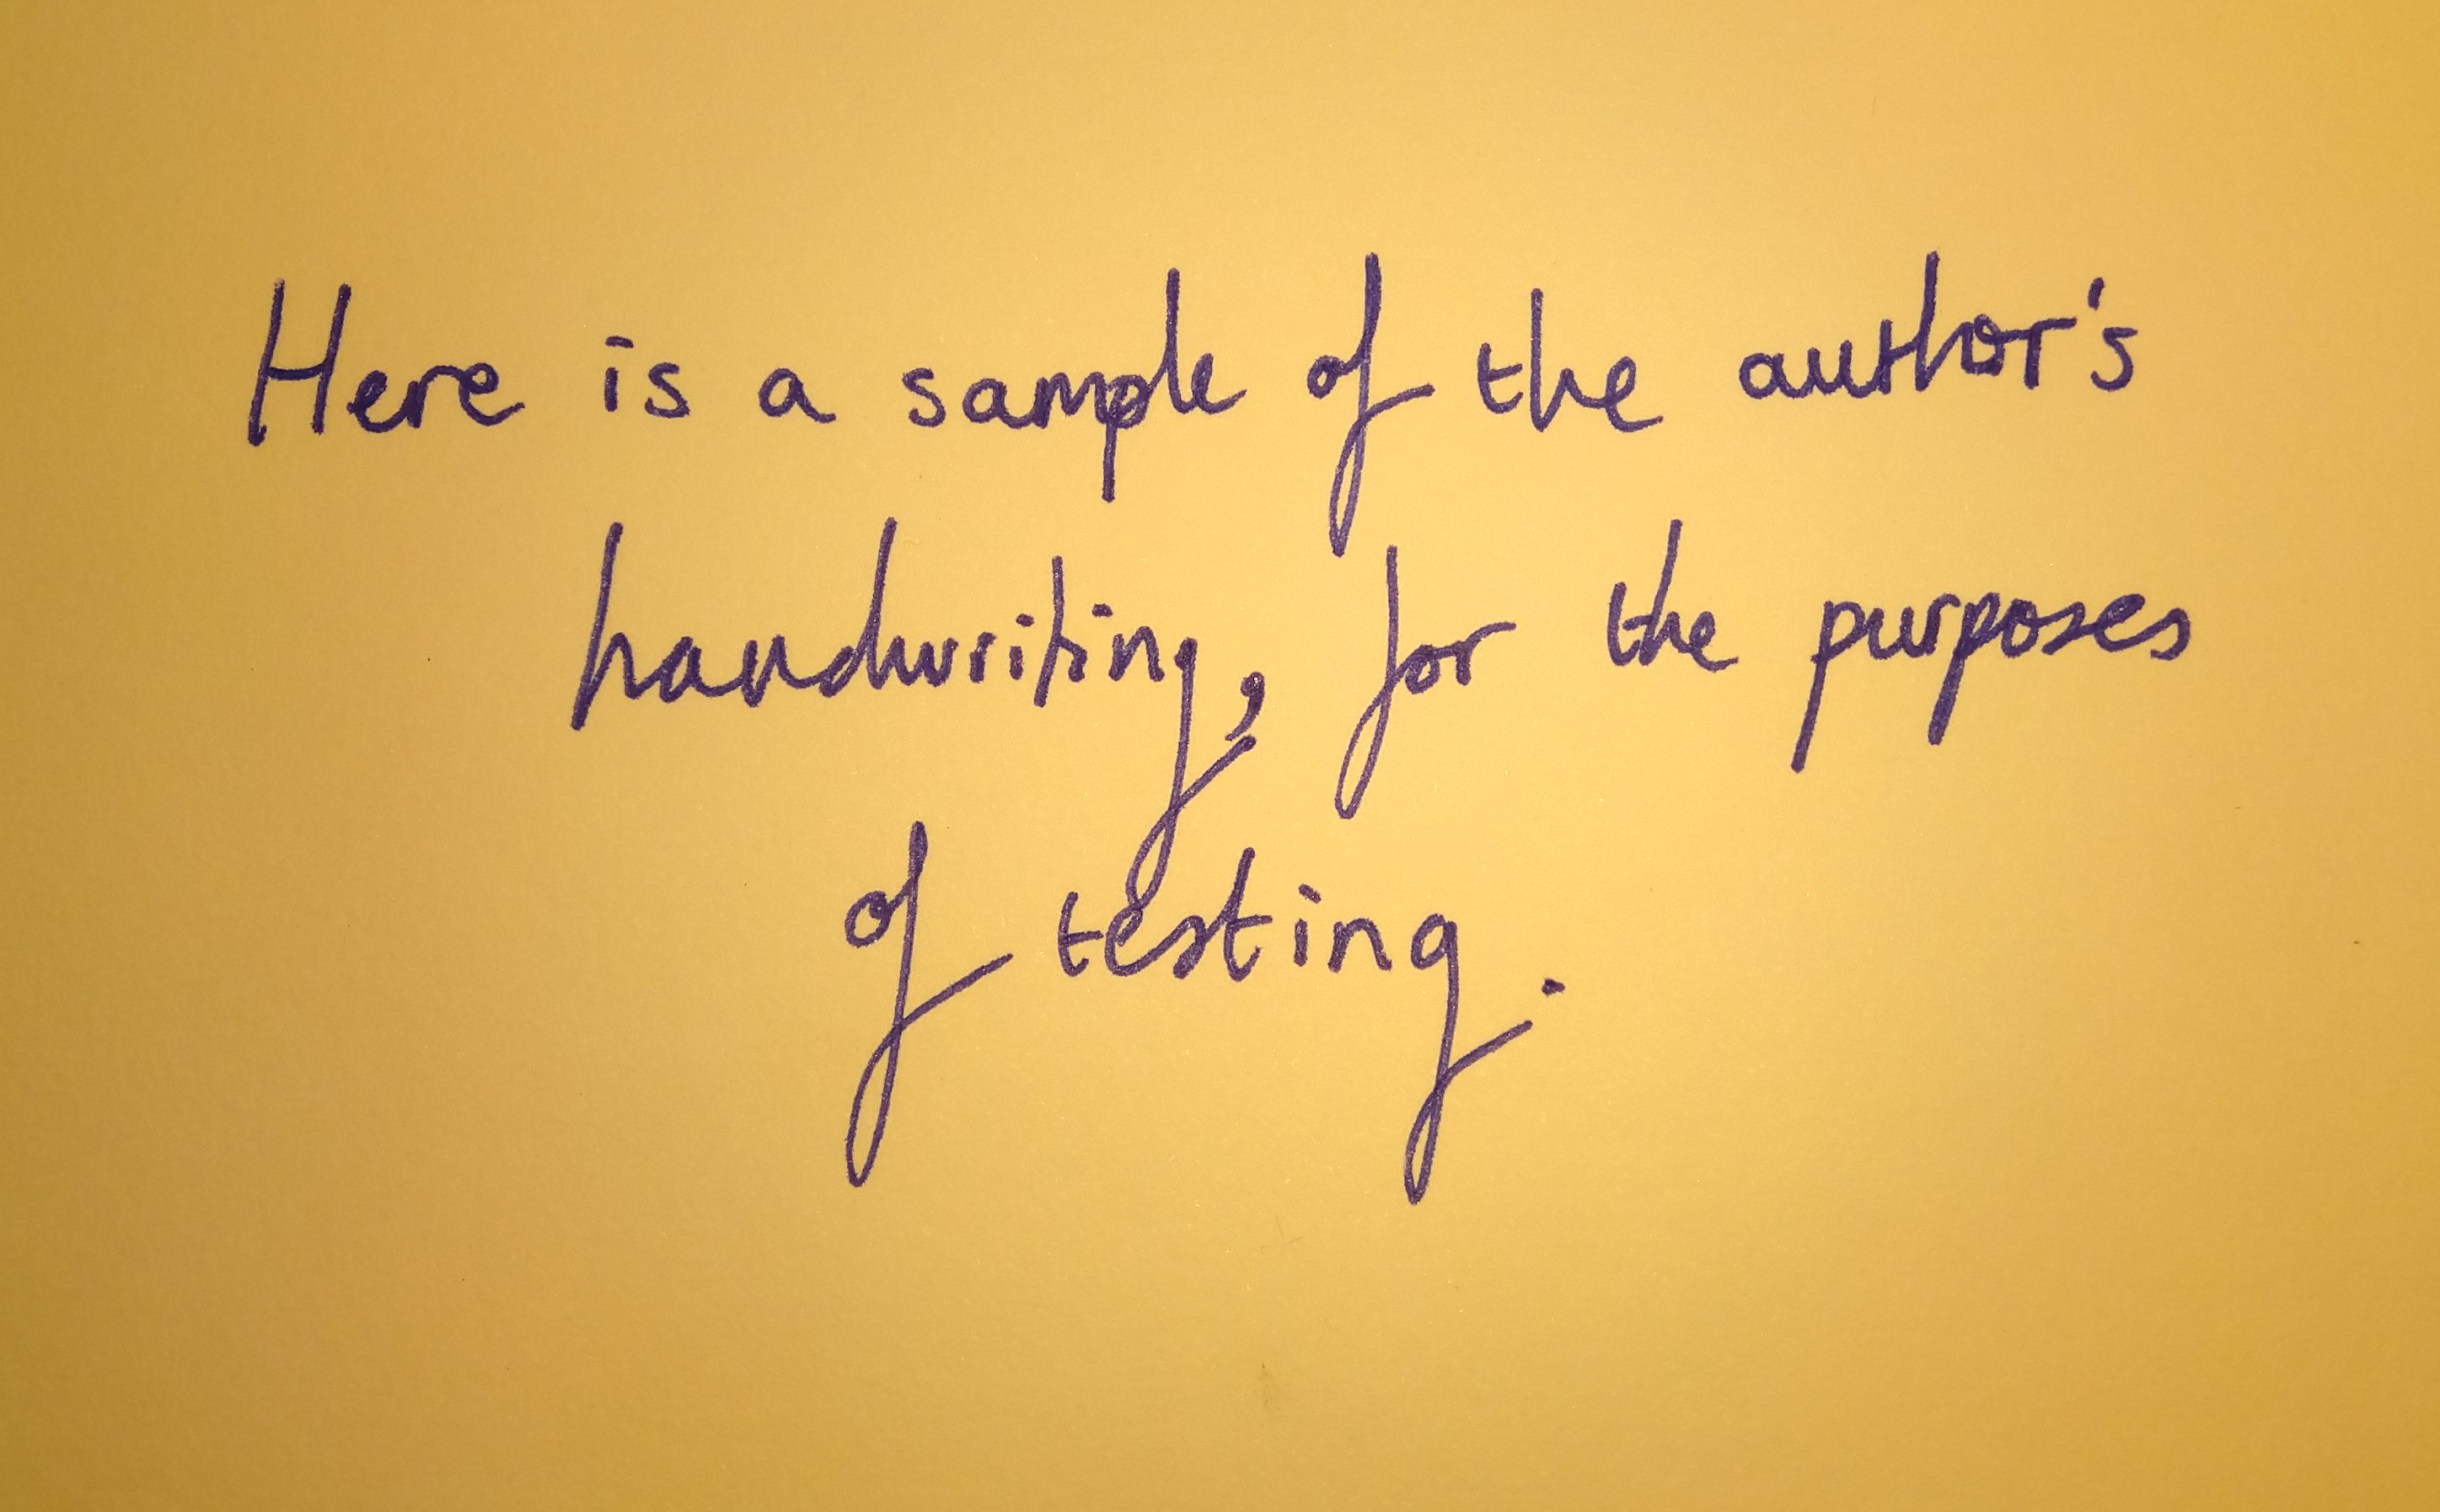 Here is a sample of the author's
handwriting, for the purposes
of testing.